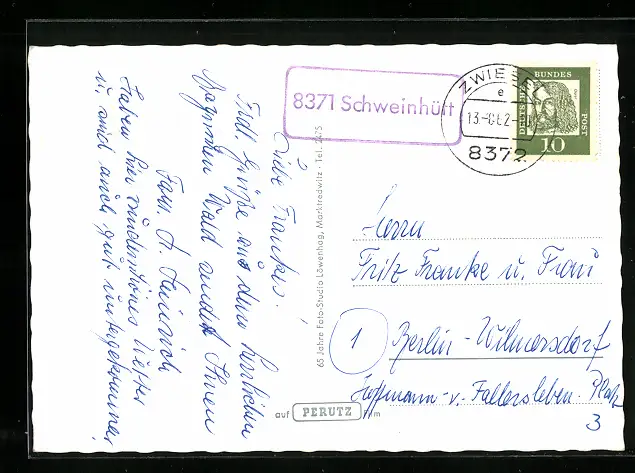 8371 Schweinhütt
ZWIESEL
e
8372
DEUTSCHE
BUNDES
POST
10
Liebe Frankes!
Frdl. Grüße aus dem herrlichen
Wald sendet Ihnen
Fam. A. Heinrich
Haben hier wunderschönes Wetter
u. sind auch gut untergekommen.
65 Jahre Foto-Studio Löwenhag, Marktredwitz · Tel. 2475
Herrn
Fritz Franke u. Frau
1 Berlin-Wilmersdorf
Hoffmann-v.-Fallersleben-Platz
3
auf PERUTZ Film